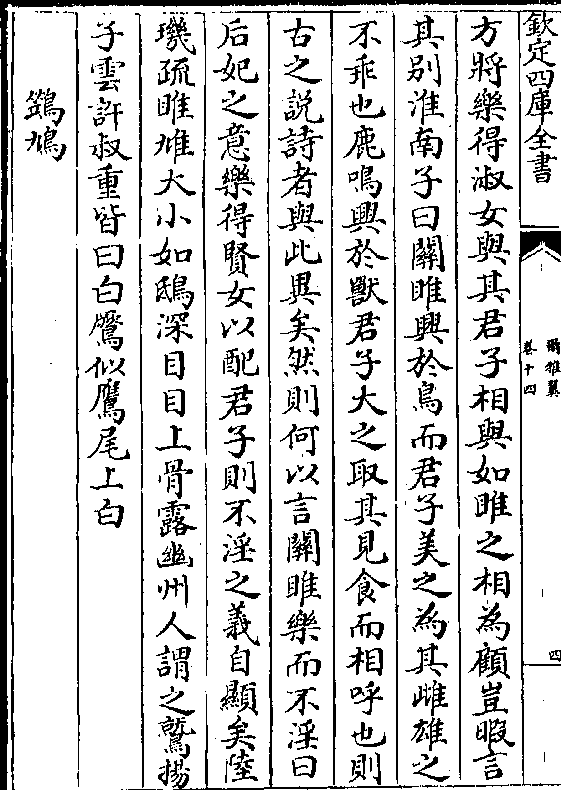 欽定四庫全書
爾雅翼
卷十四
四
方將樂得淑女與其君子相與如雎之相為顧豈暇言
其别淮南子曰關雎興於鳥而君子美之為其雌雄之
不乖也鹿鳴興於獸君子大之取其見食而相呼也則
古之説詩者與此異矣然則何以言關雎樂而不淫曰
后妃之意樂得賢女以配君子則不淫之義自顯矣陸
璣疏雎鳩大小如鴟深目目上骨露幽州人謂之鷲揚
子雲許叔重皆曰白鷢似鷹尾上白
鷁鳩